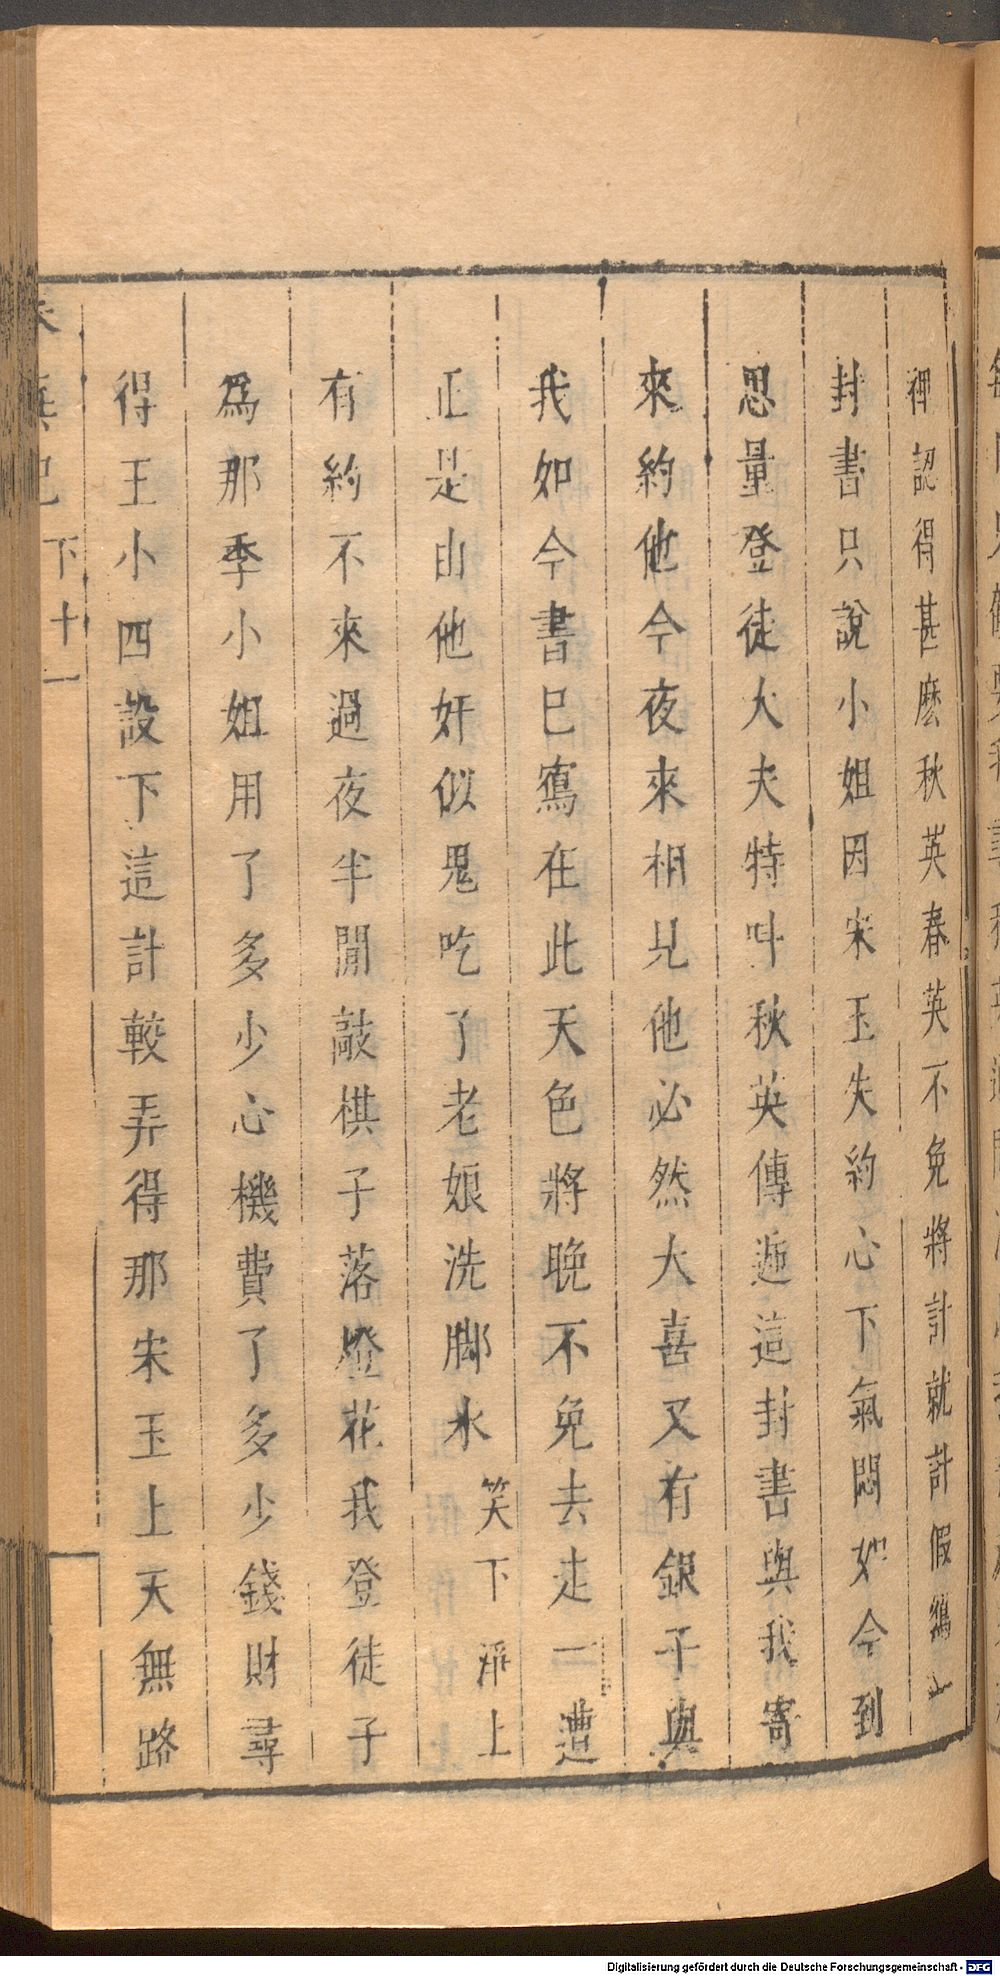 裡認得甚麼秋英春英不免將計就計假
封書只說小姐因宋玉失約心下氣悶如今到
思量登徒大夫特叫秋英傳遞這封書與我寄
來約他今夜來相見他必然大喜又有銀子與
我如今書巳寫在此天色將晚不免去走一遭
正是由他奸似鬼吃了老娘洗脚水 笑下 淨上
有約不來過夜半閒敲棋子落燈花我登徒子
爲那季小姐用了多少心機費了多少錢財尋
得王小四設下這計較弄得那宋玉上天無路
下十一
Digitalisierung gefördert durch die Deutsche Forschungsgemeinschaft - DFG